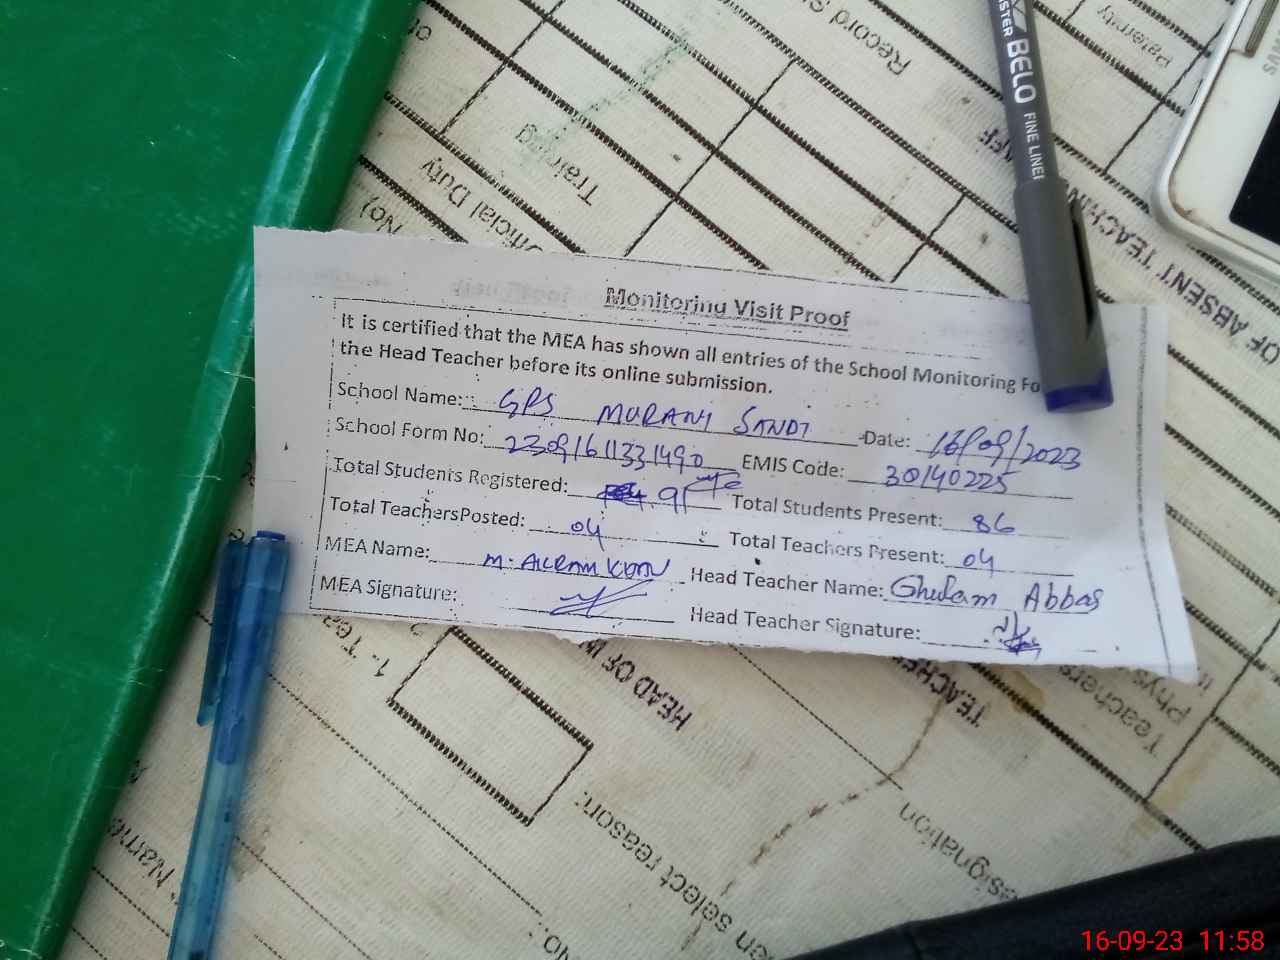 Monitoring Visit Proof
It is certified that the MEA has shown all entries of the School Monitoring Fo
the Head Teacher before its online submission.
School Name: GPS MURANI SANDI Date: 16/09/2023
School Form No: 23091611331490 EMIS Code: 30140225
Total Students Registered: 91 Total Students Present: 86
Total TeachersPosted: 04 Total Teachers Present: 04
MEA Name: M. AKRAM KHAN Head Teacher Name: Ghulam Abbas
MEA Signature: Head Teacher Signature:
BELO FINE LINER
SAMS
Record S
Paternity
STAFF
Training
Official Duty
No)
OF ABSENT TEACHIN
HEAD OF
TEACHE
Teachers
Phys
1- Tea
en select reason:
esignation
Name
No.:
16-09-23 11:58